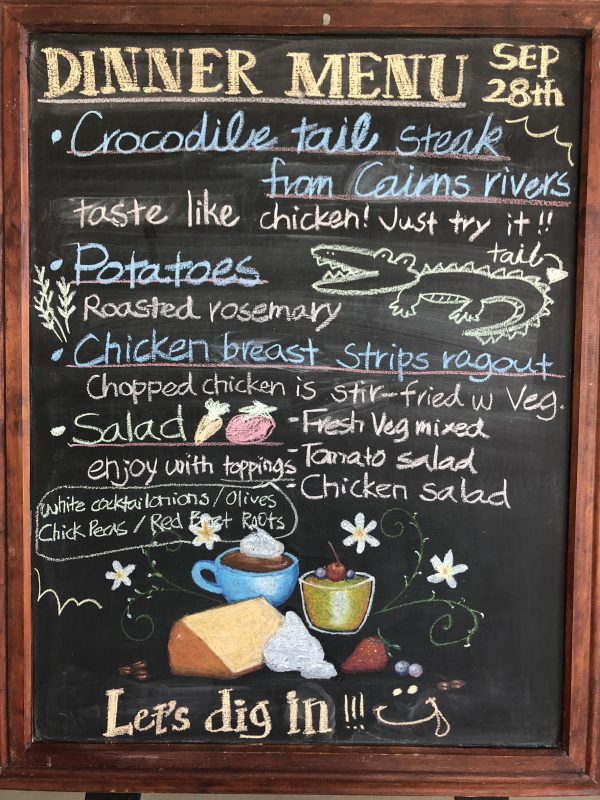 DINNER MENU
SEP 28th
• Crocodile tail steak
from Cairns rivers
taste like chicken! Just try it !!
tail
• Potatoes
Roasted rosemary
• Chicken breast strips ragout
Chopped chicken is stir-fried w Veg.
• Salad
- Fresh Veg mixed
enjoy with toppings
- Tomato salad
- Chicken salad
White cocktail onions / Olives
Chick Peas / Red Beet Roots
Let's dig in !!!